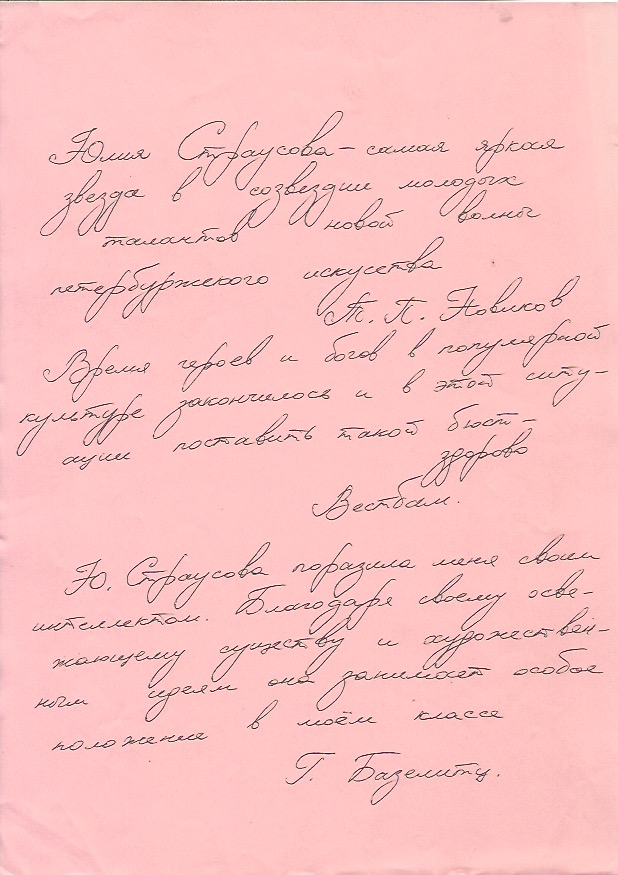 Юлия Страусова – самая яркая
звезда в созвездии молодых
талантов новой волны
петербуржского искусства
Т. П. Новиков
Время героев и богов в популярной
культуре закончилось и в этой ситу-
ации поставить такой бюст –
здорово
Вестбам.
Ю. Страусова поразила меня своим
интеллектом. Благодаря своему осве-
жающему существу и художествен-
ным идеям она занимает особое
положение в моём классе
Г. Базелитц.